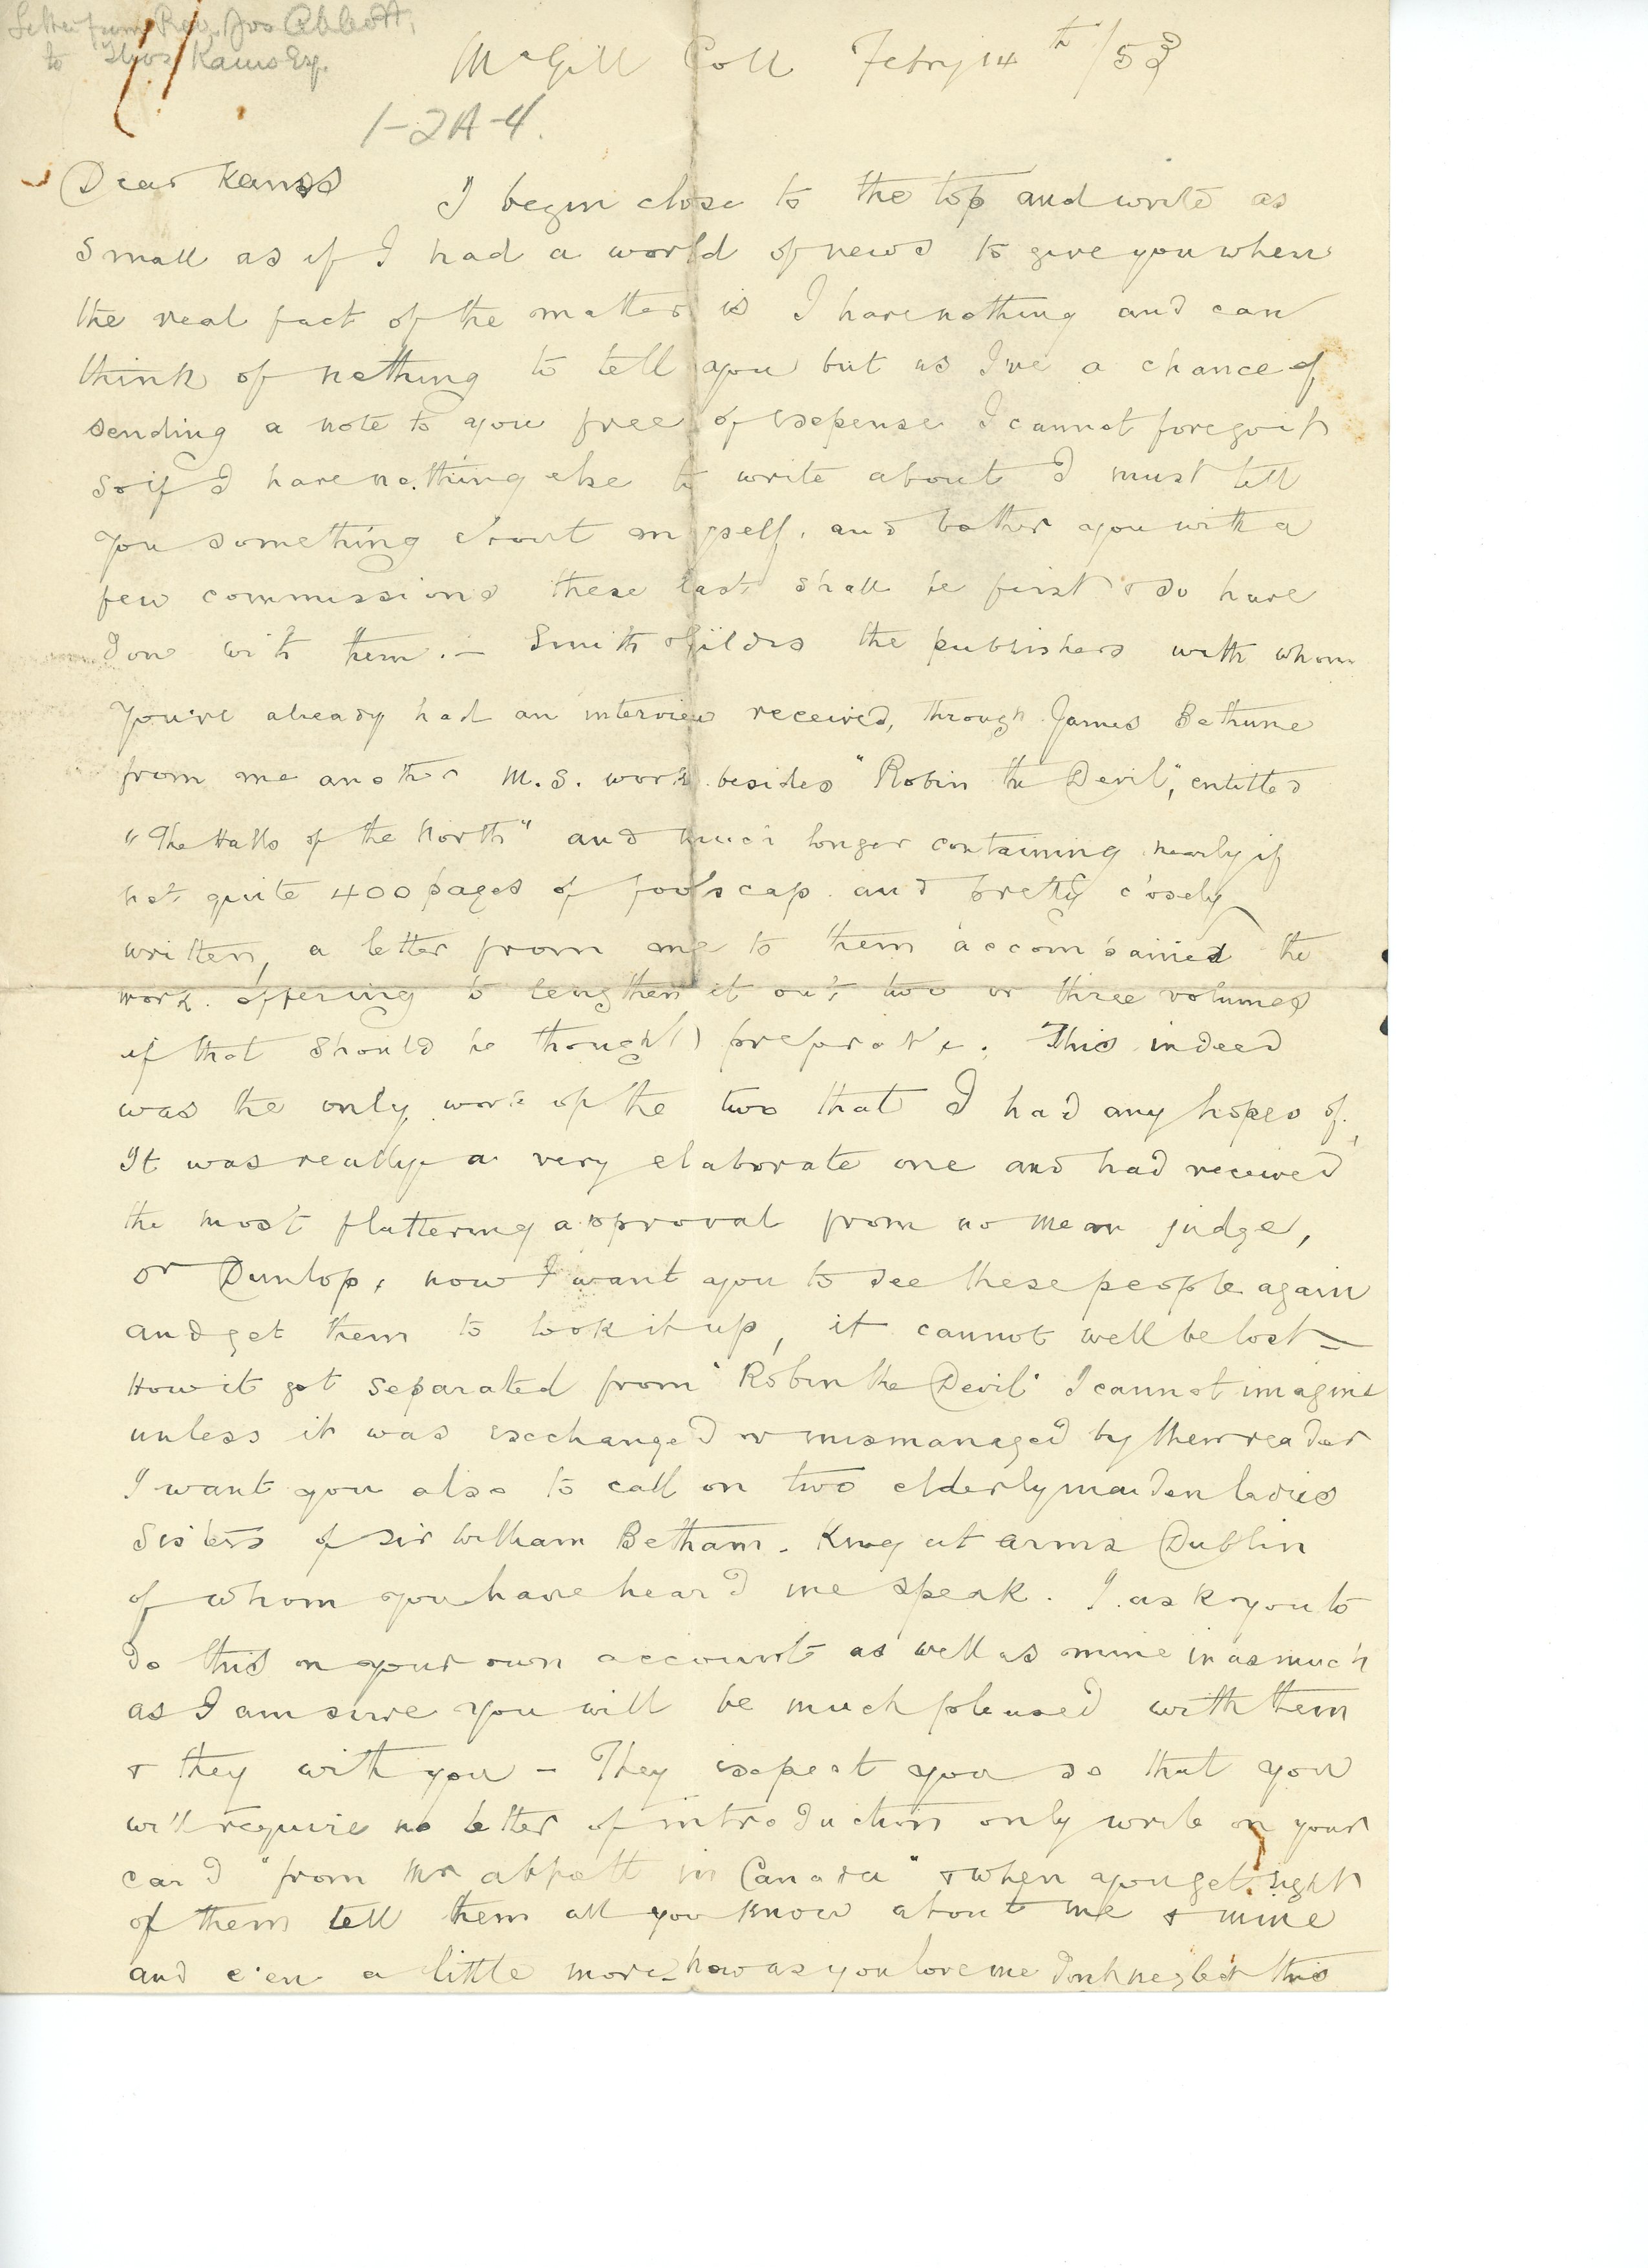 Letter from Rev. Jos Abbott,
to Thos Kains Esq.
McGill Coll Febry 14th /53
1-2A-4.
Dear Kains I begin close to the top and write as
small as if I had a world of news to give you when
the real fact of the matter is I have nothing and can
think of nothing to tell you but as I've a chance of
sending a note to you free of expense I cannot forego it
so if I have nothing else to write about I must tell
you something about myself, and bother you with a
few commissions these last shall be first & so have
done with them. — Smith & Elders the publishers with whom
You've already had an interview received, through James Bethune
from me another M.S. work besides "Robin the Devil", entitled
"The Halls of the North" and much longer containing nearly if
not quite 400 pages of foolscap and pretty closely
written, a letter from me to them accompanied the
work offering to lengthen it out two or three volumes
if that should be thought preferable. This indeed
was the only work of the two that I had any hopes of,
It was really a very elaborate one and had received
the most flattering approval from no mean judge,
Dr Dunlop, now I want you to see these people again
and get them to look it up, it cannot well be lost —
How it got separated from "Robin the Devil" I cannot imagine
unless it was exchanged or mismanaged by their reader
I want you also to call on two elderly maiden ladies
Sisters of Sir William Betham. King at arms Dublin
of whom you have heard me speak. I ask you to
do this on your own account as well as mine in as much
as I am sure you will be much pleased with them
& they with you — They expect you so that you
will require no letter of introduction only write on your
card "from Mr Abbott in Canada" & when you get sight
of them tell them all you know about me & mine
and e'en a little more — now as you love me dont neglect this